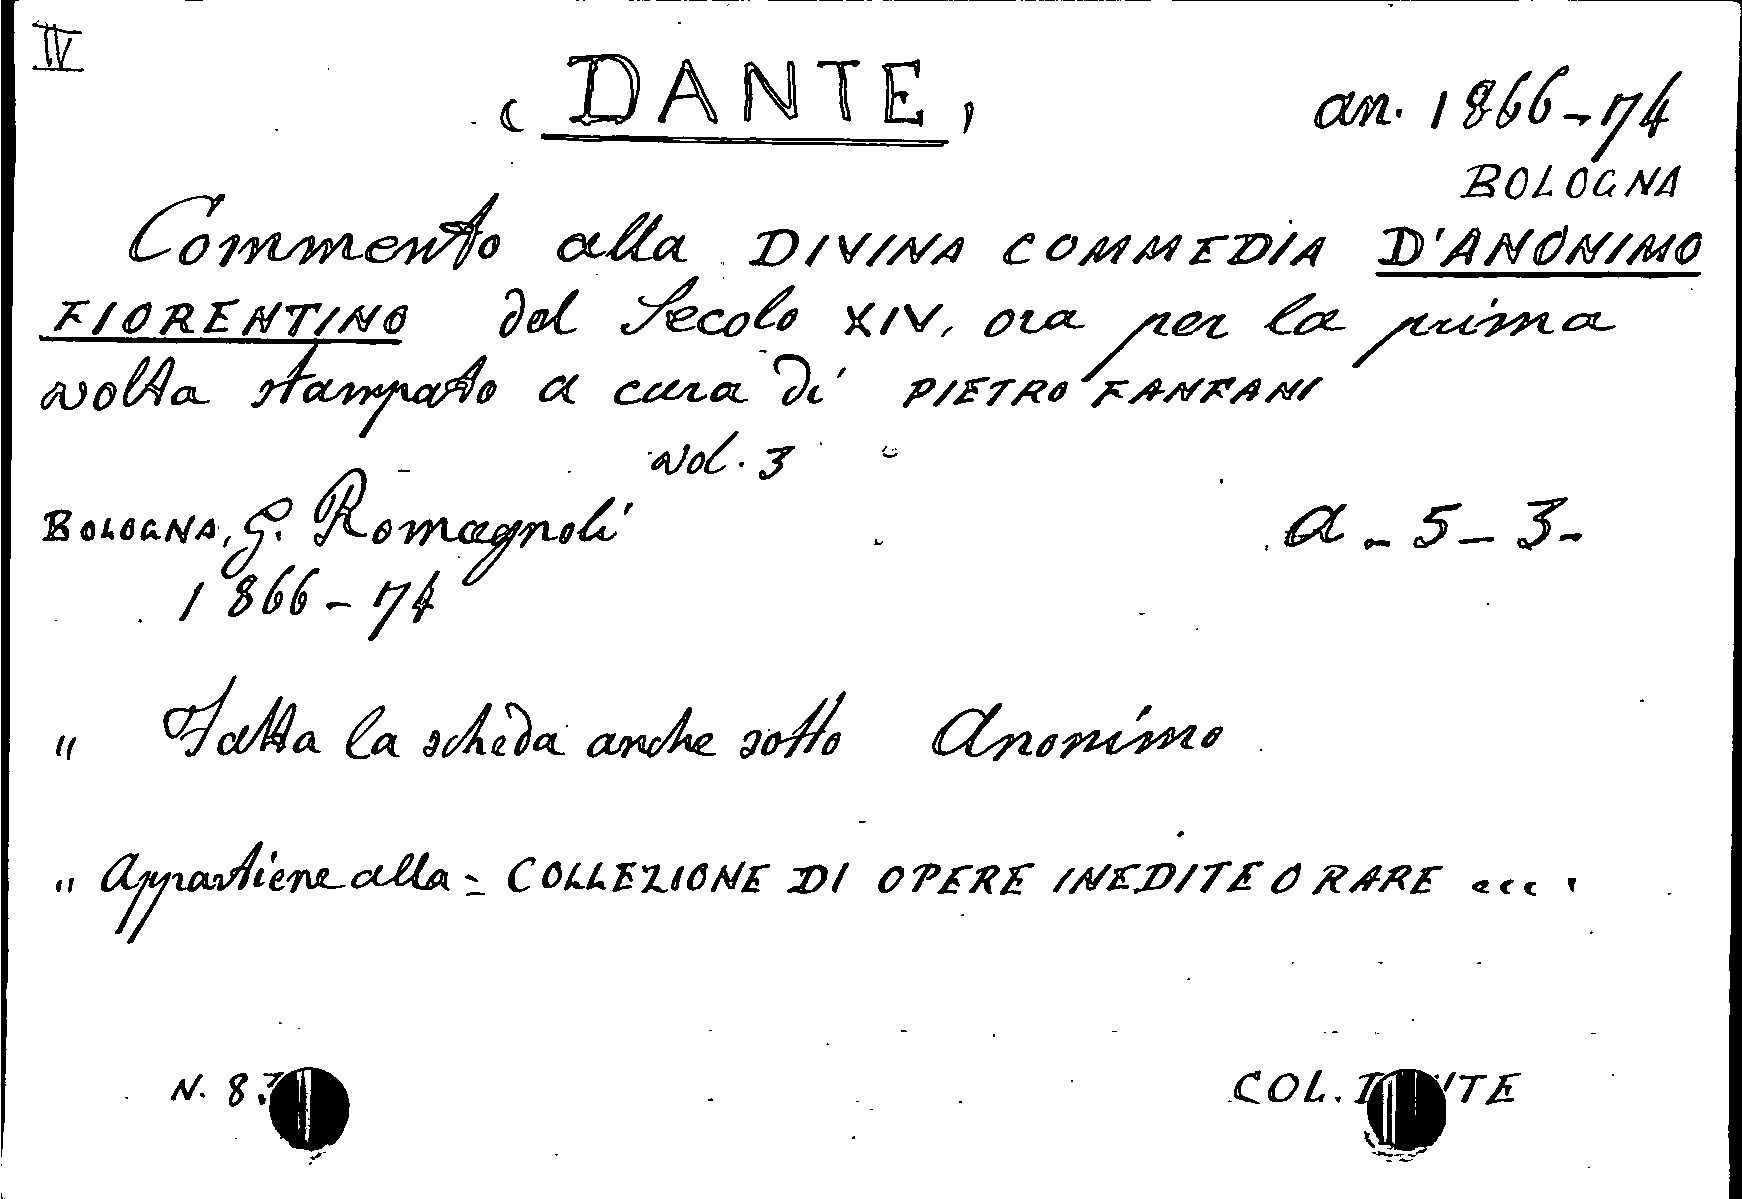 IV
( DANTE )
an. 1866-74
BOLOGNA
Commento alla DIVINA COMMEDIA D'ANONIMO
FIORENTINO del Secolo XIV, ora per la prima
volta stampato a cura di PIETRO FANFANI
vol. 3
BOLOGNA, G. Romagnoli
a - 5 - 3 -
1866 - 74
" Fatta la scheda anche sotto Anonimo
" Appartiene alla = COLLEZIONE DI OPERE INEDITE O RARE ....
N. 8
COL.